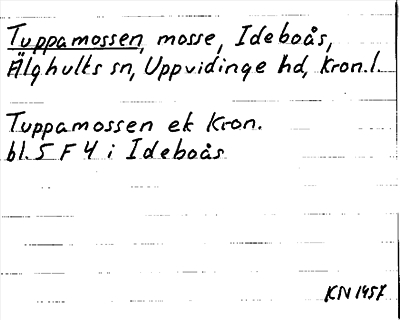 Tuppamossen, mosse, Ideboås,
Älghults sn, Uppvidinge hd, Kron.l.
Tuppamossen ek Kron.
bl. 5 F 4 i Ideboås
KN 1957